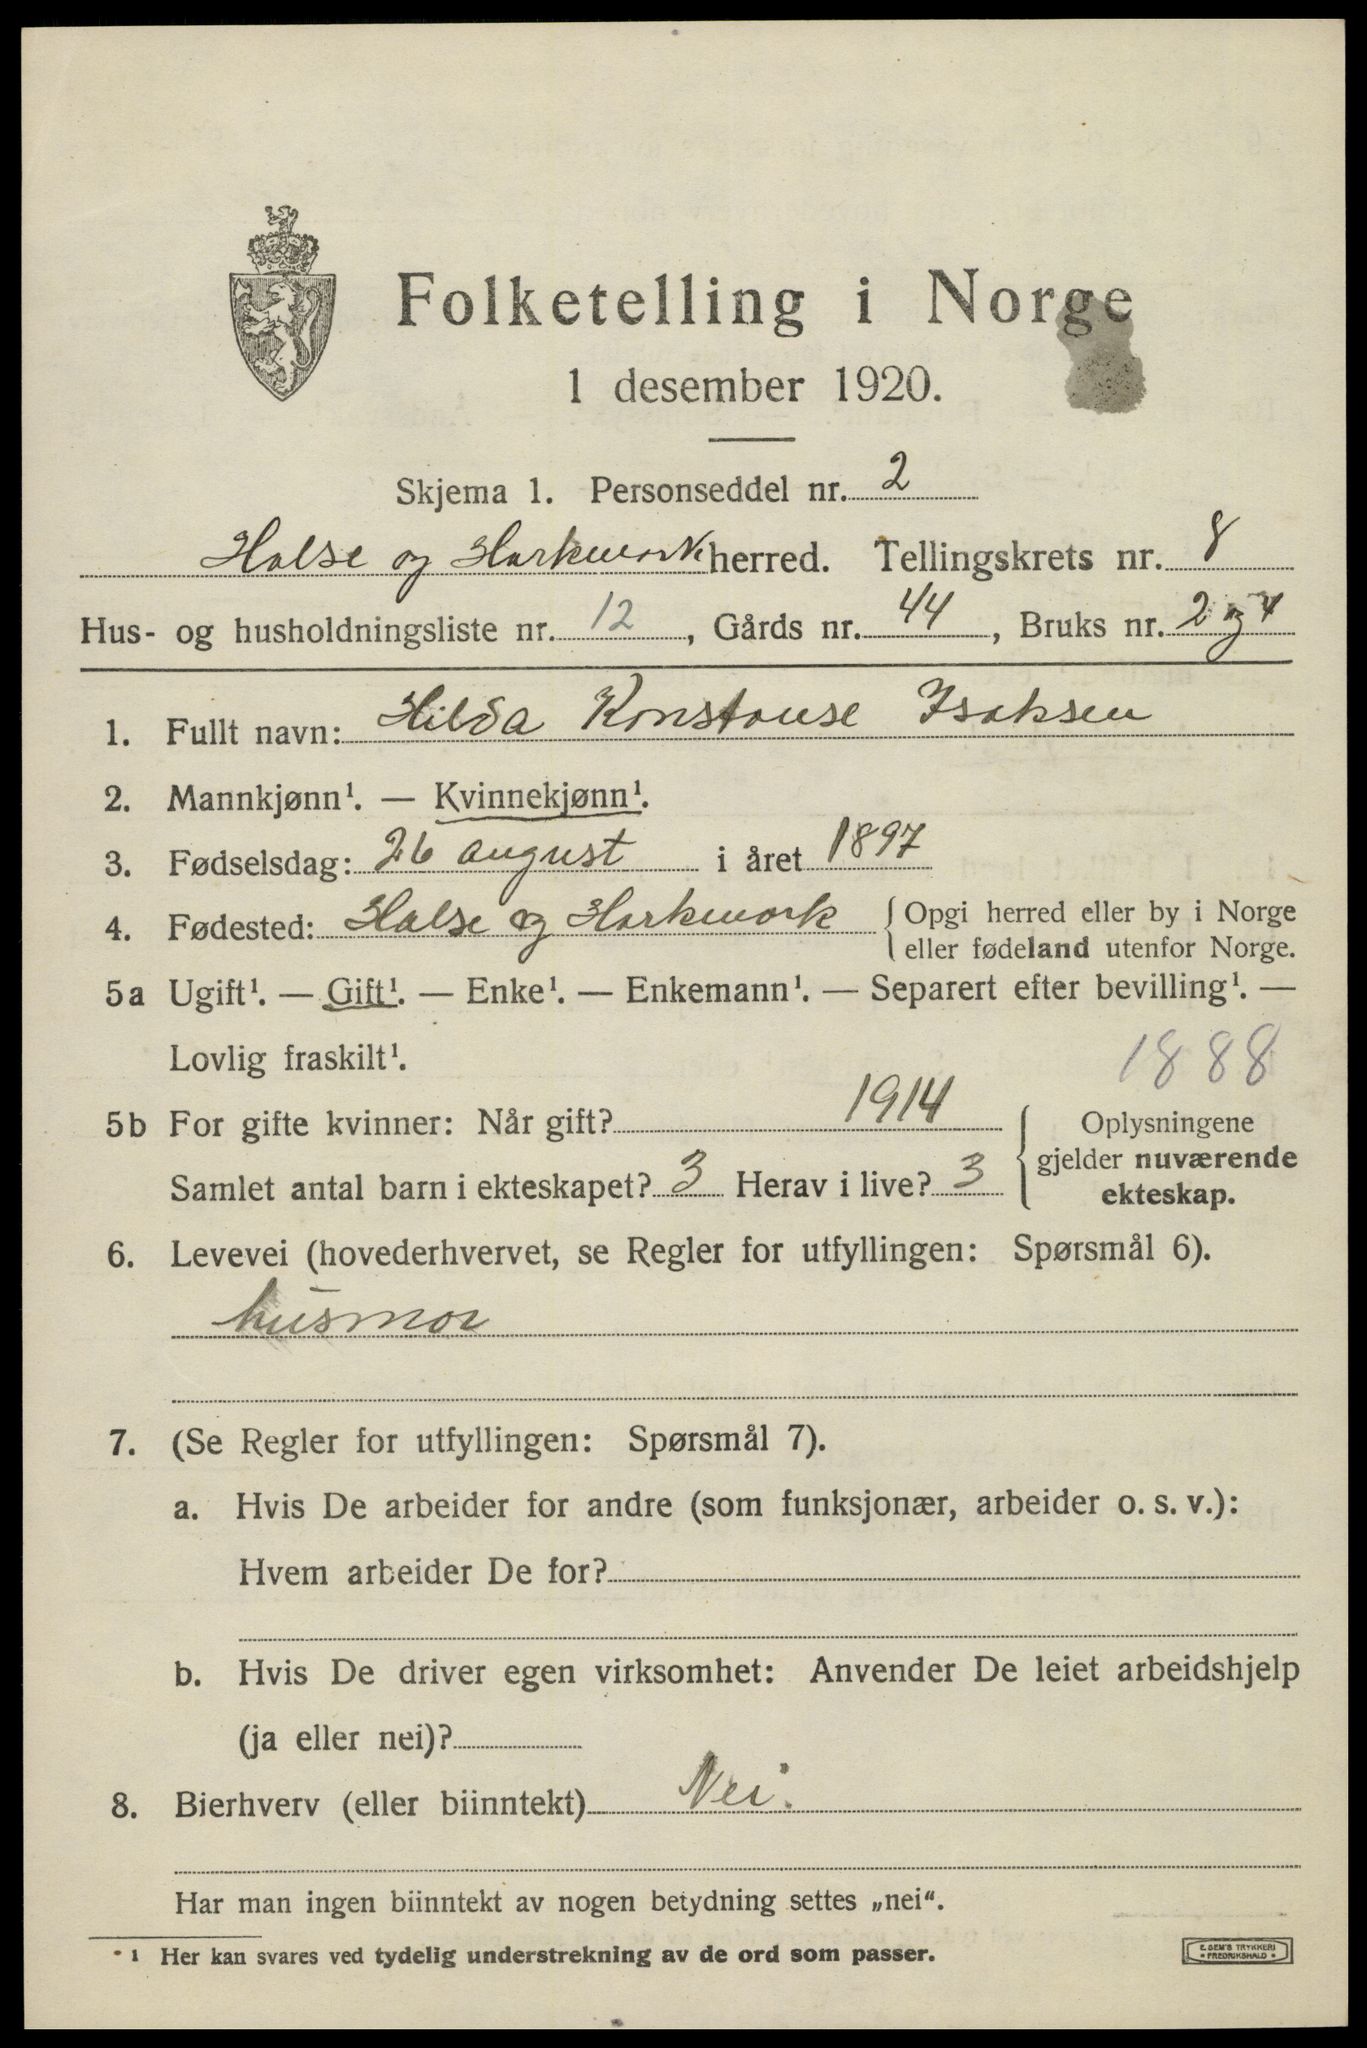 Folketelling i Norge
1 desember 1920.
Skjema 1. Personseddel nr. 2
Halse og Harkmark herred. Tellingskrets nr. 8
Hus- og husholdningsliste nr. 12, Gårds nr. 44, Bruks nr. 2 og 4
1. Fullt navn: Hilda Konstanse Isaksen
2. Mannkjønn¹. — Kvinnekjønn¹.
3. Fødselsdag: 26 august i året 1897
4. Fødested: Halse og Harkmark { Opgi herred eller by i Norge
eller fødeland utenfor Norge.
5a Ugift¹. — Gift¹. — Enke¹. — Enkemann¹. — Separert efter bevilling¹. —
Lovlig fraskilt¹.
1888
5b For gifte kvinner: Når gift? 1914 { Oplysningene
gjelder nuværende
Samlet antal barn i ekteskapet? 3 Herav i live? 3
ekteskap.
6. Levevei (hovederhvervet, se Regler for utfyllingen: Spørsmål 6).
husmor
7. (Se Regler for utfyllingen: Spørsmål 7).
a. Hvis De arbeider for andre (som funksjonær, arbeider o. s. v.):
Hvem arbeider De for?
b. Hvis De driver egen virksomhet: Anvender De leiet arbeidshjelp
(ja eller nei)?
8. Bierhverv (eller biinntekt) Nei.
Har man ingen biinntekt av nogen betydning settes „nei“.
¹ Her kan svares ved tydelig understrekning av de ord som passer.
E. SEM'S TRYKKERI
* FREDRIKSHALD *